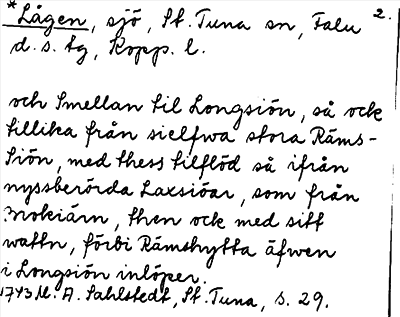 *Lågen, sjö, St. Tuna sn, Falu 2.
d. s. tg, Kopp. l.
och Smellan til Longsiön, så ock
tillika från sielfwa stora Räms-
siön, med thess tilflöd så ifrån
nyssberörda Laxsiöar, som från
Mokiärn, then ock med sitt
wattn, förbi Rämshytta äfwen
i Longsiön inlöper.
1743 M. A. Sahlstedt, St. Tuna, s. 29.